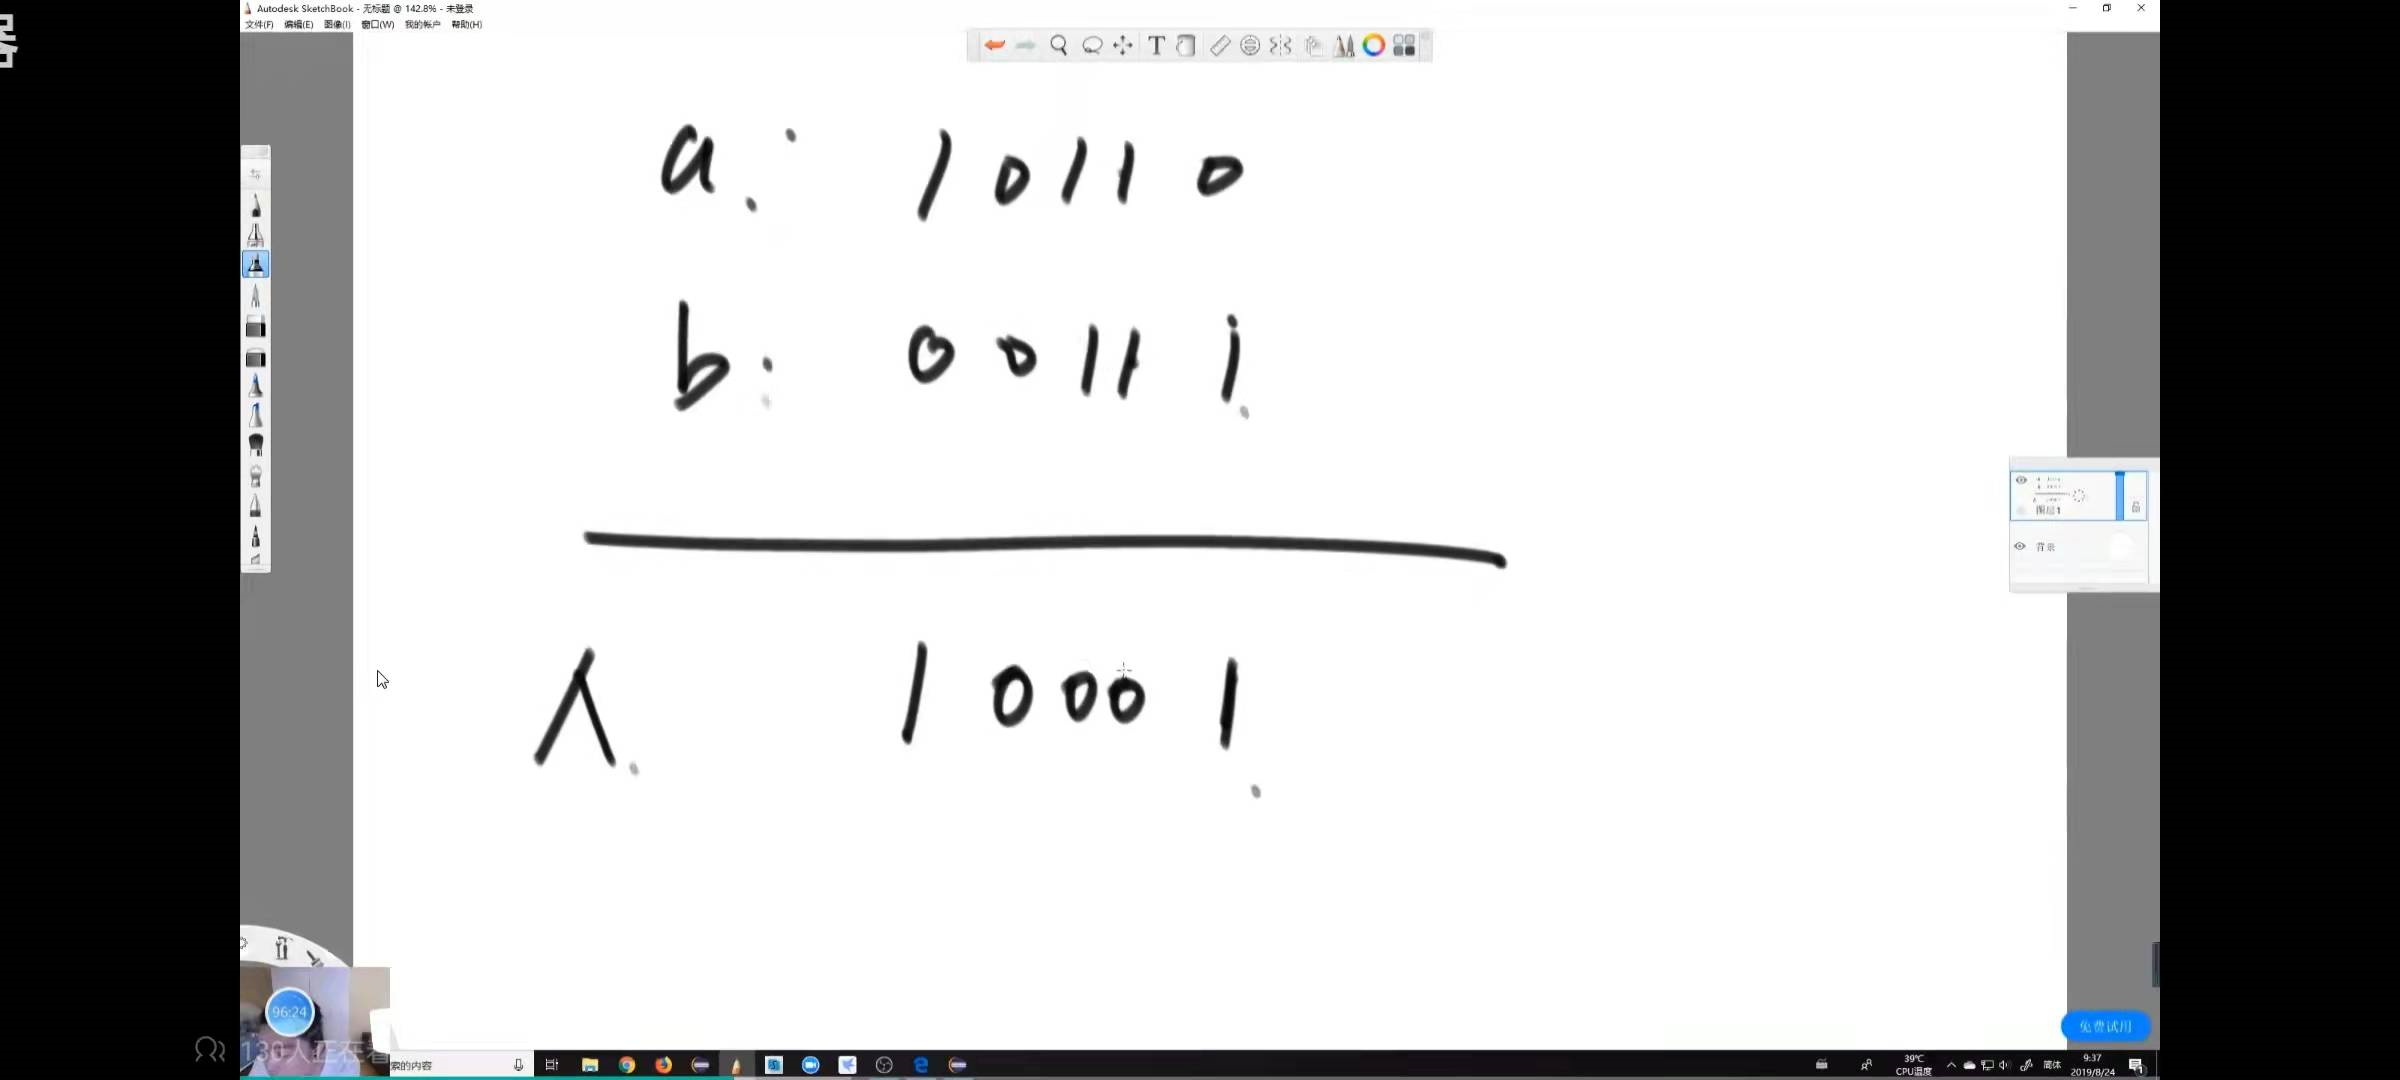 器
Autodesk SketchBook - 无标题 @ 142.8% - 未登录
文件(F) 编辑(E) 图像(I) 窗口(W) 我的帐户 帮助(H)
T
a: 10110
b: 00111
图层1
背景
λ 10001
96:24
免费试用
130人正在看
索的内容
39℃
CPU温度
简体
9:37
2019/8/24